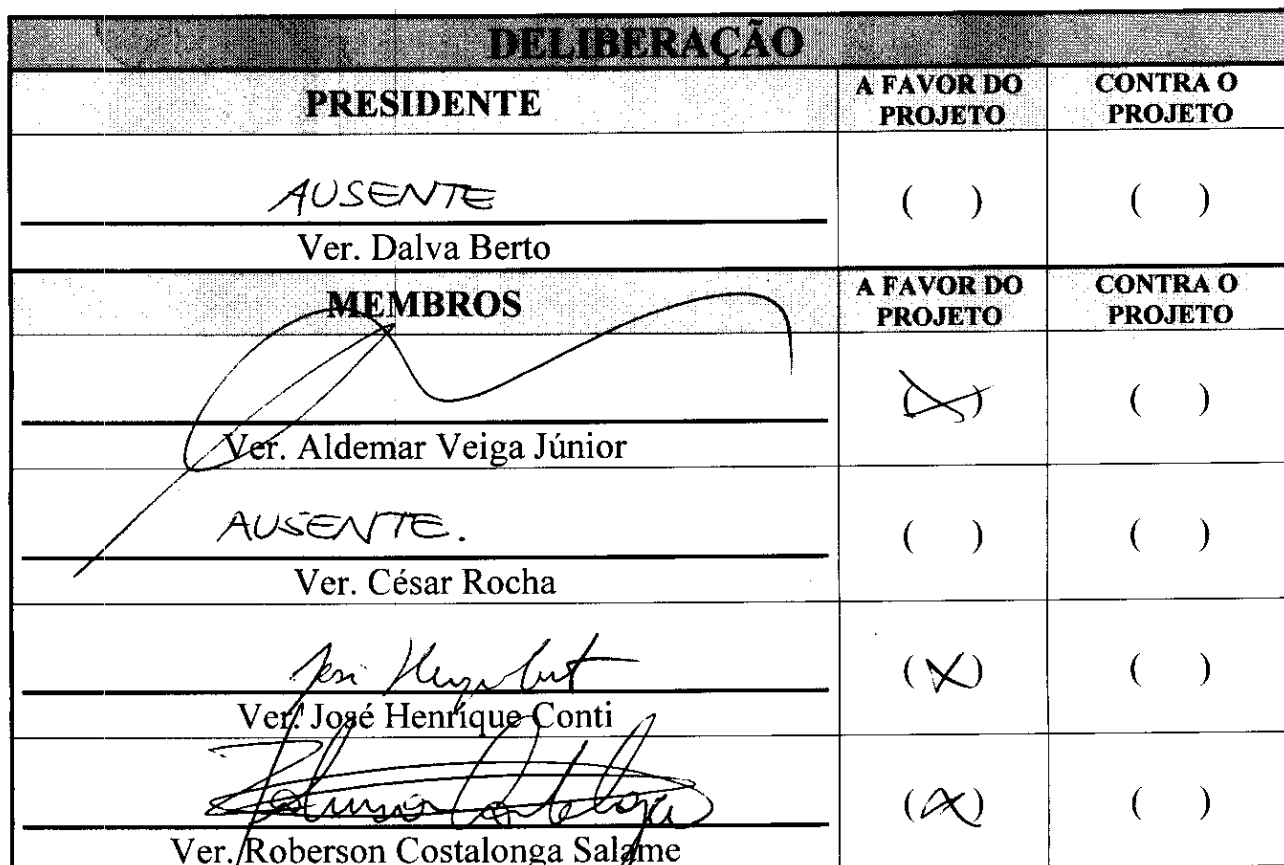 DELIBERAÇÃO
PRESIDENTE
A FAVOR DO PROJETO
CONTRA O PROJETO
AUSENTE
( )
( )
Ver. Dalva Berto
MEMBROS
A FAVOR DO PROJETO
CONTRA O PROJETO
(X)
( )
Ver. Aldemar Veiga Júnior
AUSENTE.
( )
( )
Ver. César Rocha
(X)
( )
Ver. José Henrique Conti
(X)
( )
Ver. Roberson Costalonga Salame